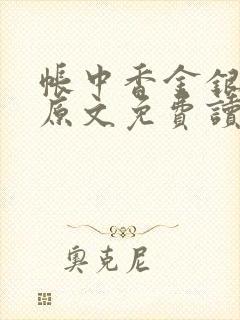 帳中香金銀
原文免費讀
奧克尼